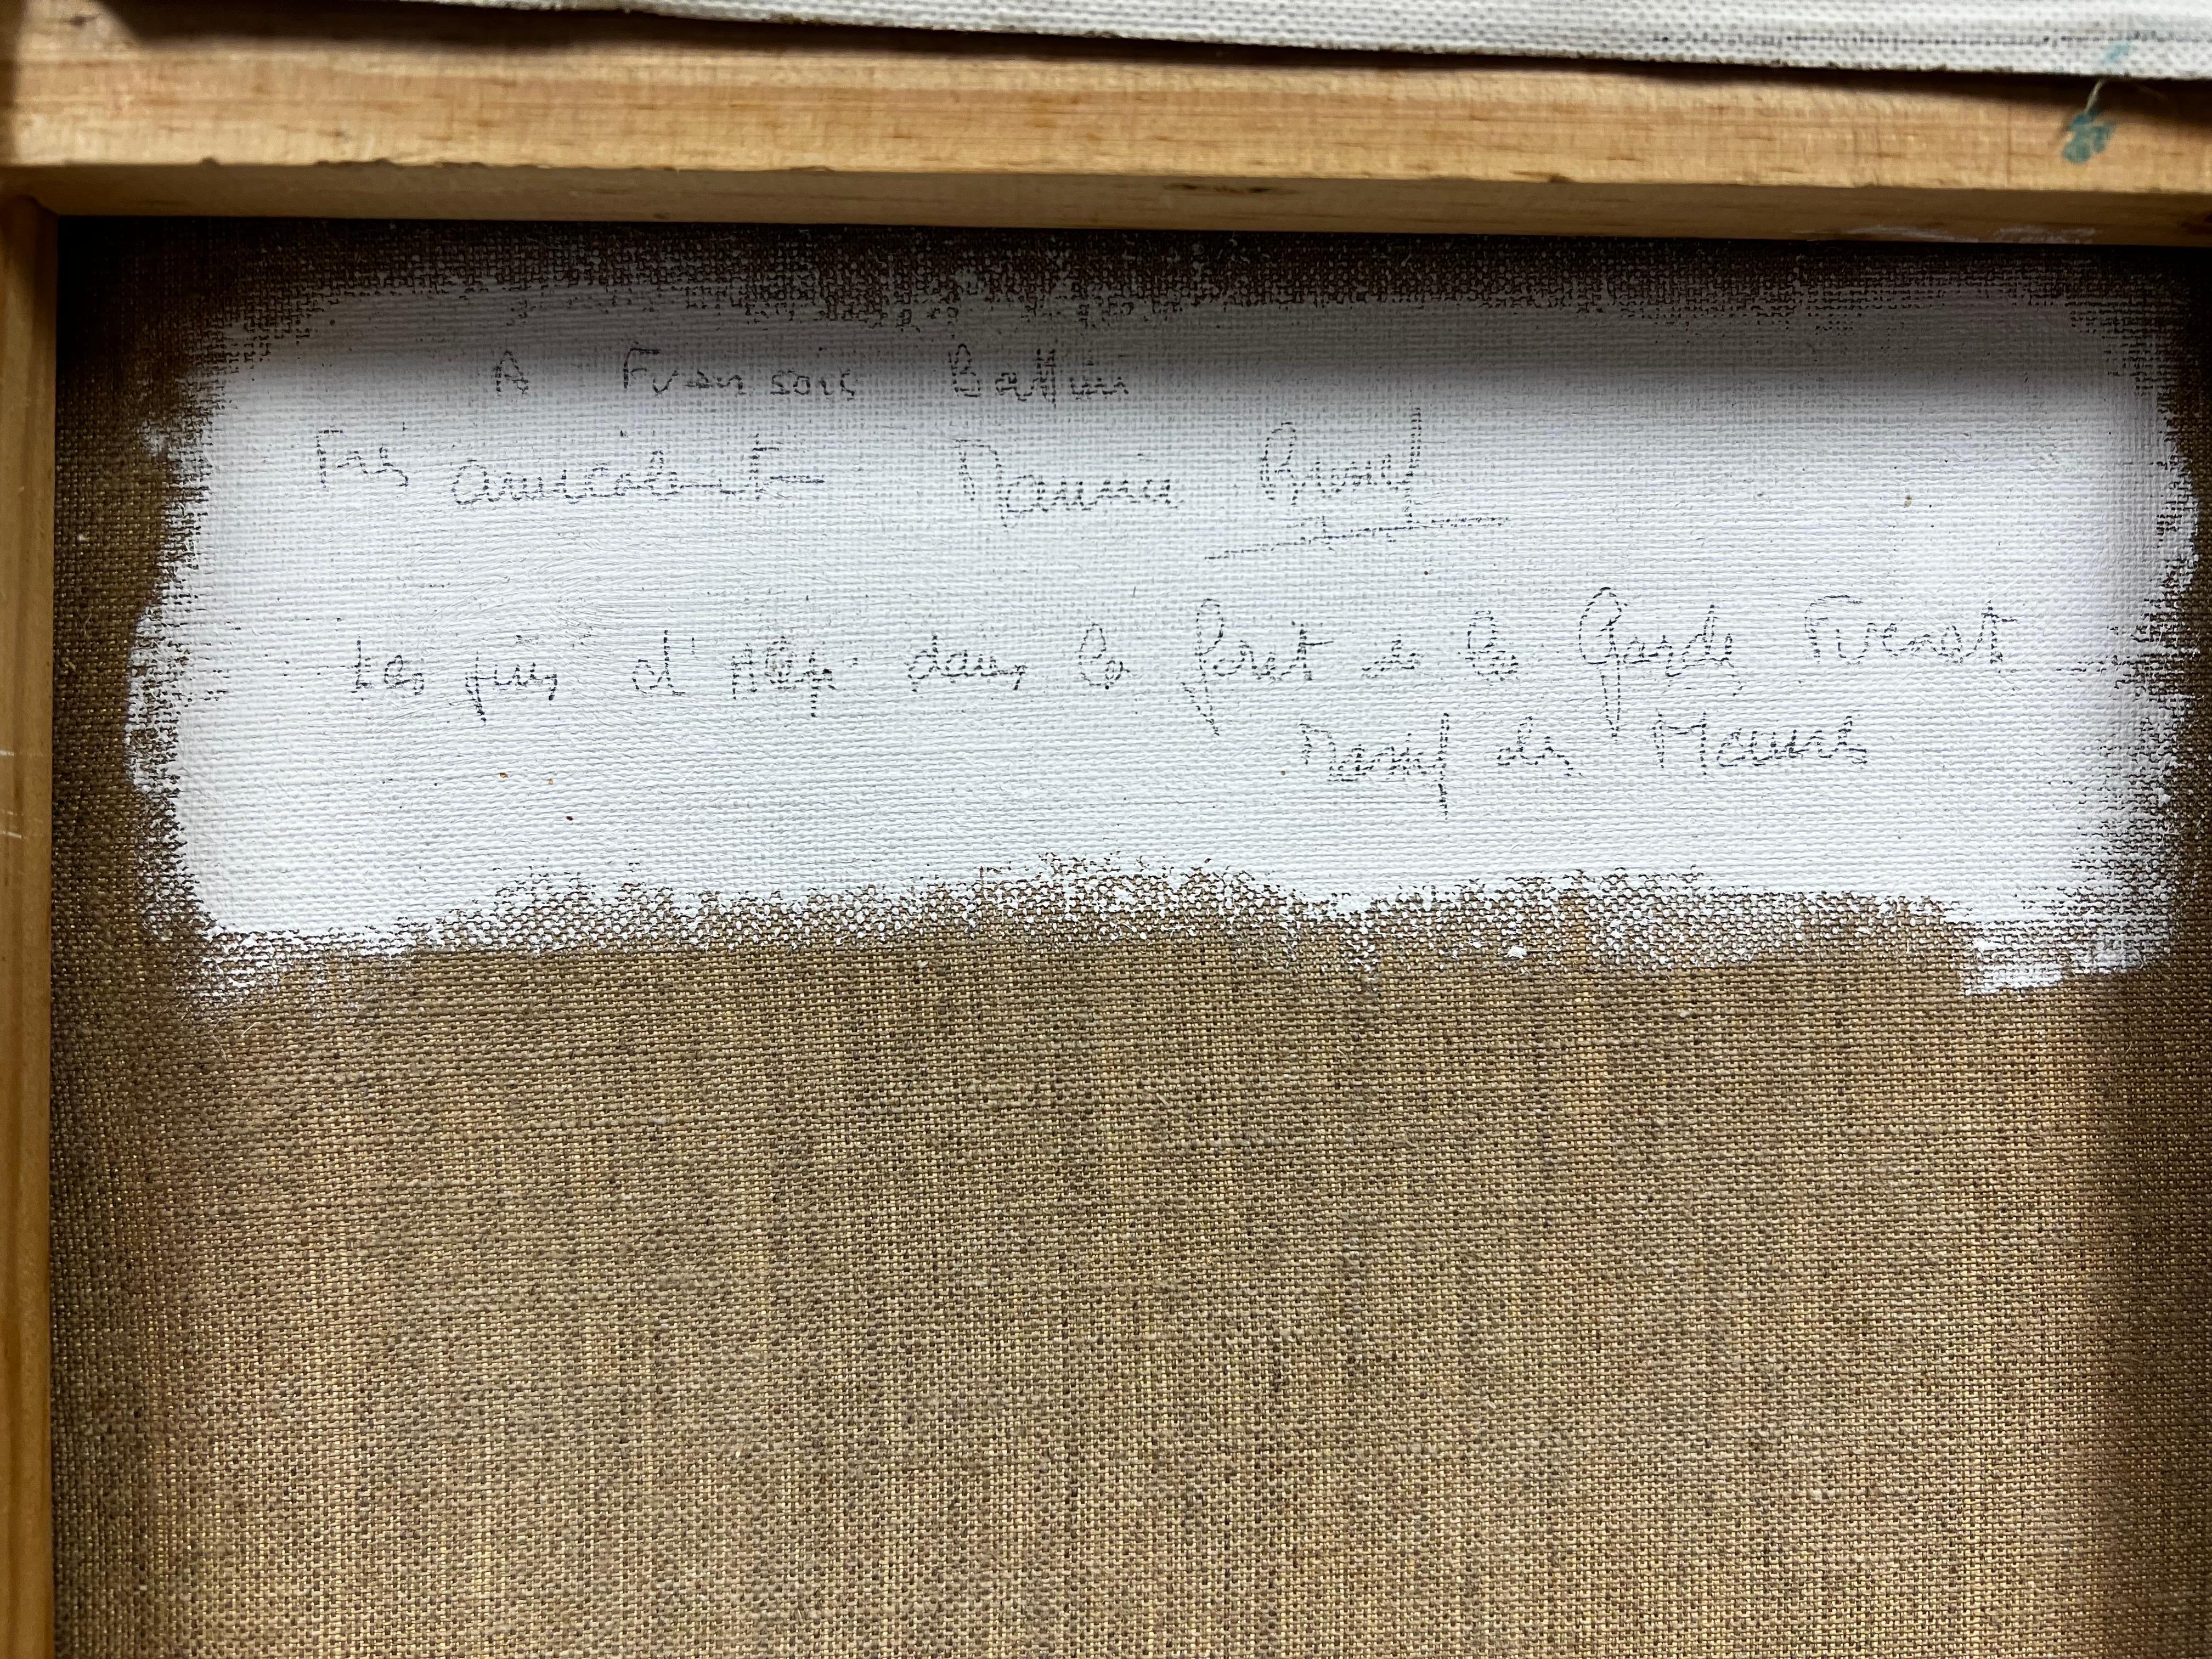 A François
Très amicalement
Les pins d'Alep dans la foret de la Garde Freinet
Massif des Maures